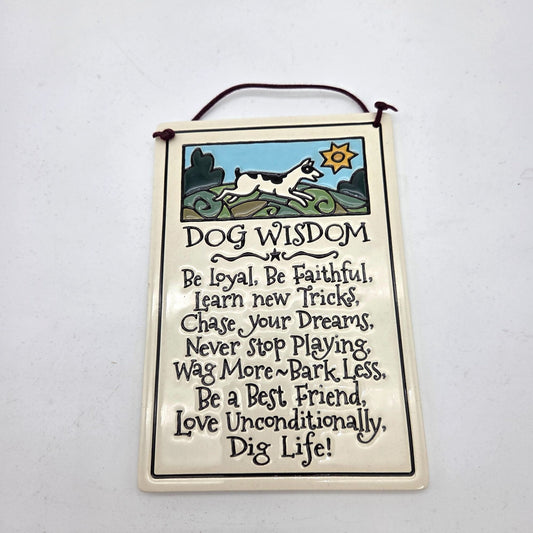 DOG WISDOM
Be Loyal, Be Faithful,
Learn new Tricks,
Chase your Dreams,
Never Stop Playing,
Wag More~Bark Less,
Be a Best Friend,
Love Unconditionally,
Dig Life!